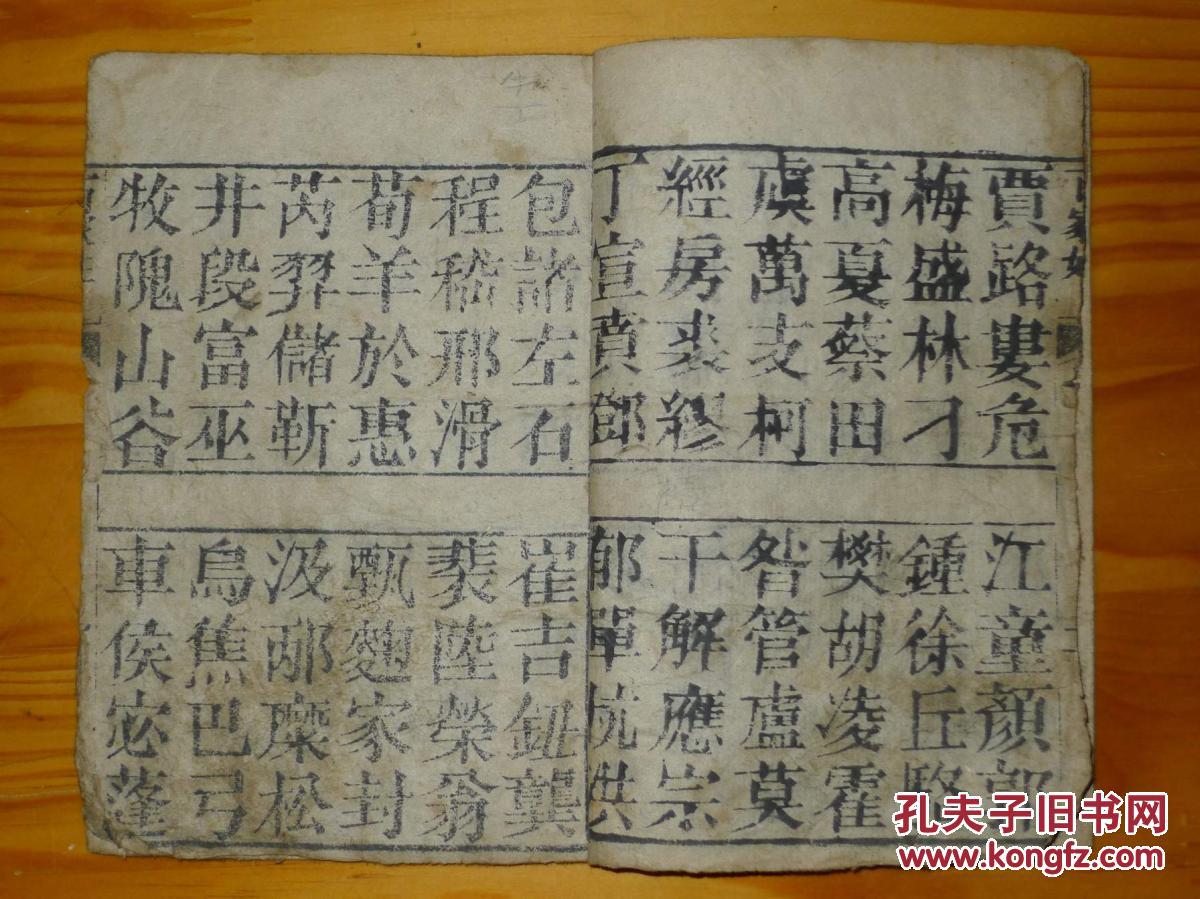 百家姓
賈路婁危
江童顏郭
梅盛林刁
鍾徐丘駱
高夏蔡田
樊胡凌霍
虞萬支柯
昝管盧莫
經房裘繆
干解應宗
丁宣賁鄧
郁單杭洪
包諸左石
崔吉鈕龔
程嵇邢滑
裴陸榮翁
荀羊於惠
甄麴家封
芮羿儲靳
汲邴糜松
井段富巫
烏焦巴弓
牧隗山谷
車侯宓蓬
孔夫子旧书网
www.kongfz.com